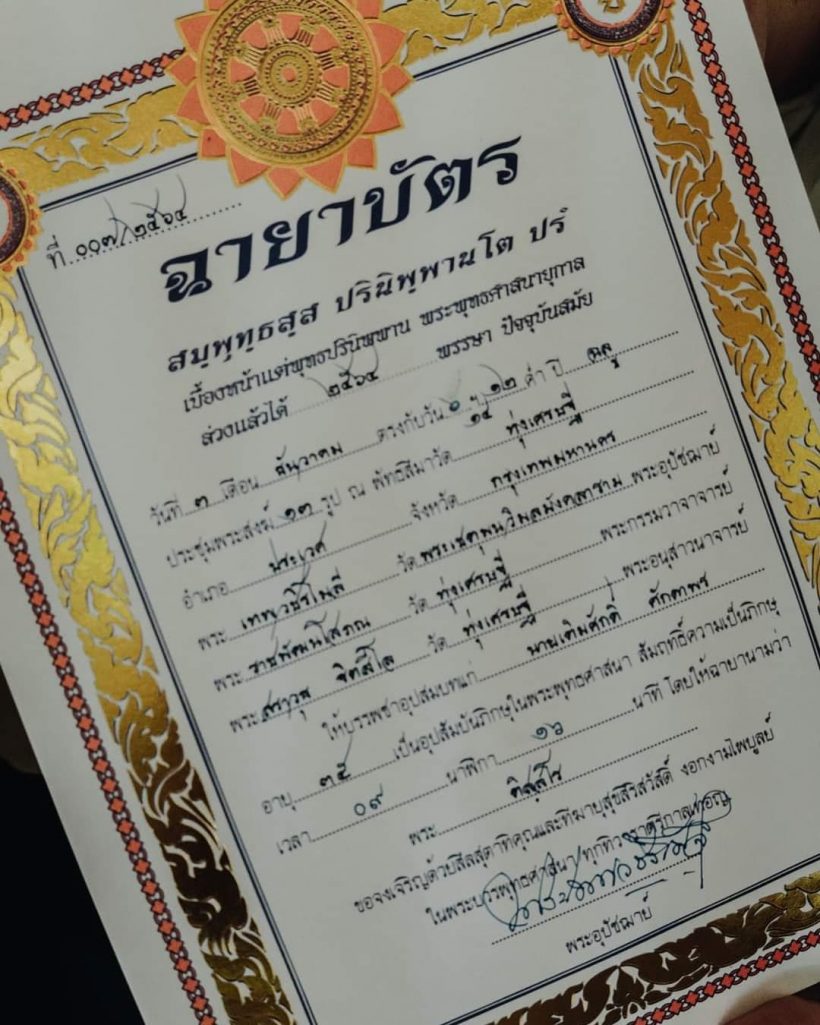 ที่ ๐๐๗/๒๕๖๔
ฉายาบัตร
สมฺพุทฺธสฺส ปรินิพฺพานโต ปรํ
เบื้องหน้าแต่พุทธปรินิพพาน พระพุทธศาสนายุกาล
ล่วงแล้วได้ ๒๕๖๔ พรรษา ปัจจุบันสมัย
วันที่ ๓ เดือน ธันวาคม ตรงกับวัน ๑๔ ๑๒ ค่ำ ปี ฉลู
ประชุมพระสงฆ์ ๑๓ รูป ณ พัทธสีมาวัด ทุ่งเศรษฐี
อำเภอ ประเวศ จังหวัด กรุงเทพมหานคร
พระ เทพวชิรโมลี วัด พระเชตุพนวิมลมังคลาราม พระอุปัชฌาย์
พระ ราชพัฒนโสภณ วัด ทุ่งเศรษฐี พระกรรมวาจาจารย์
พระ สราวุธ วัด ทุ่งเศรษฐี พระอนุสาวนาจารย์
ให้บรรพชาอุปสมบทแก่ นายเติมศักดิ์
อายุ ๓๕ เป็นอุปสัมบันภิกษุในพระพุทธศาสนา สัมฤทธิ์ความเป็นภิกษุ
เวลา ๐๙ นาฬิกา ๑๖ นาที โดยให้ฉายานามว่า
พระ
ขอจงเจริญด้วยสีลสุตาทิคุณและทีฆายุสุขสิริสวัสดิ์ งอกงามไพบูลย์
ในพระบวรพุทธศาสนา ทุกทิวาราตรีกาลเทอญ
พระอุปัชฌาย์